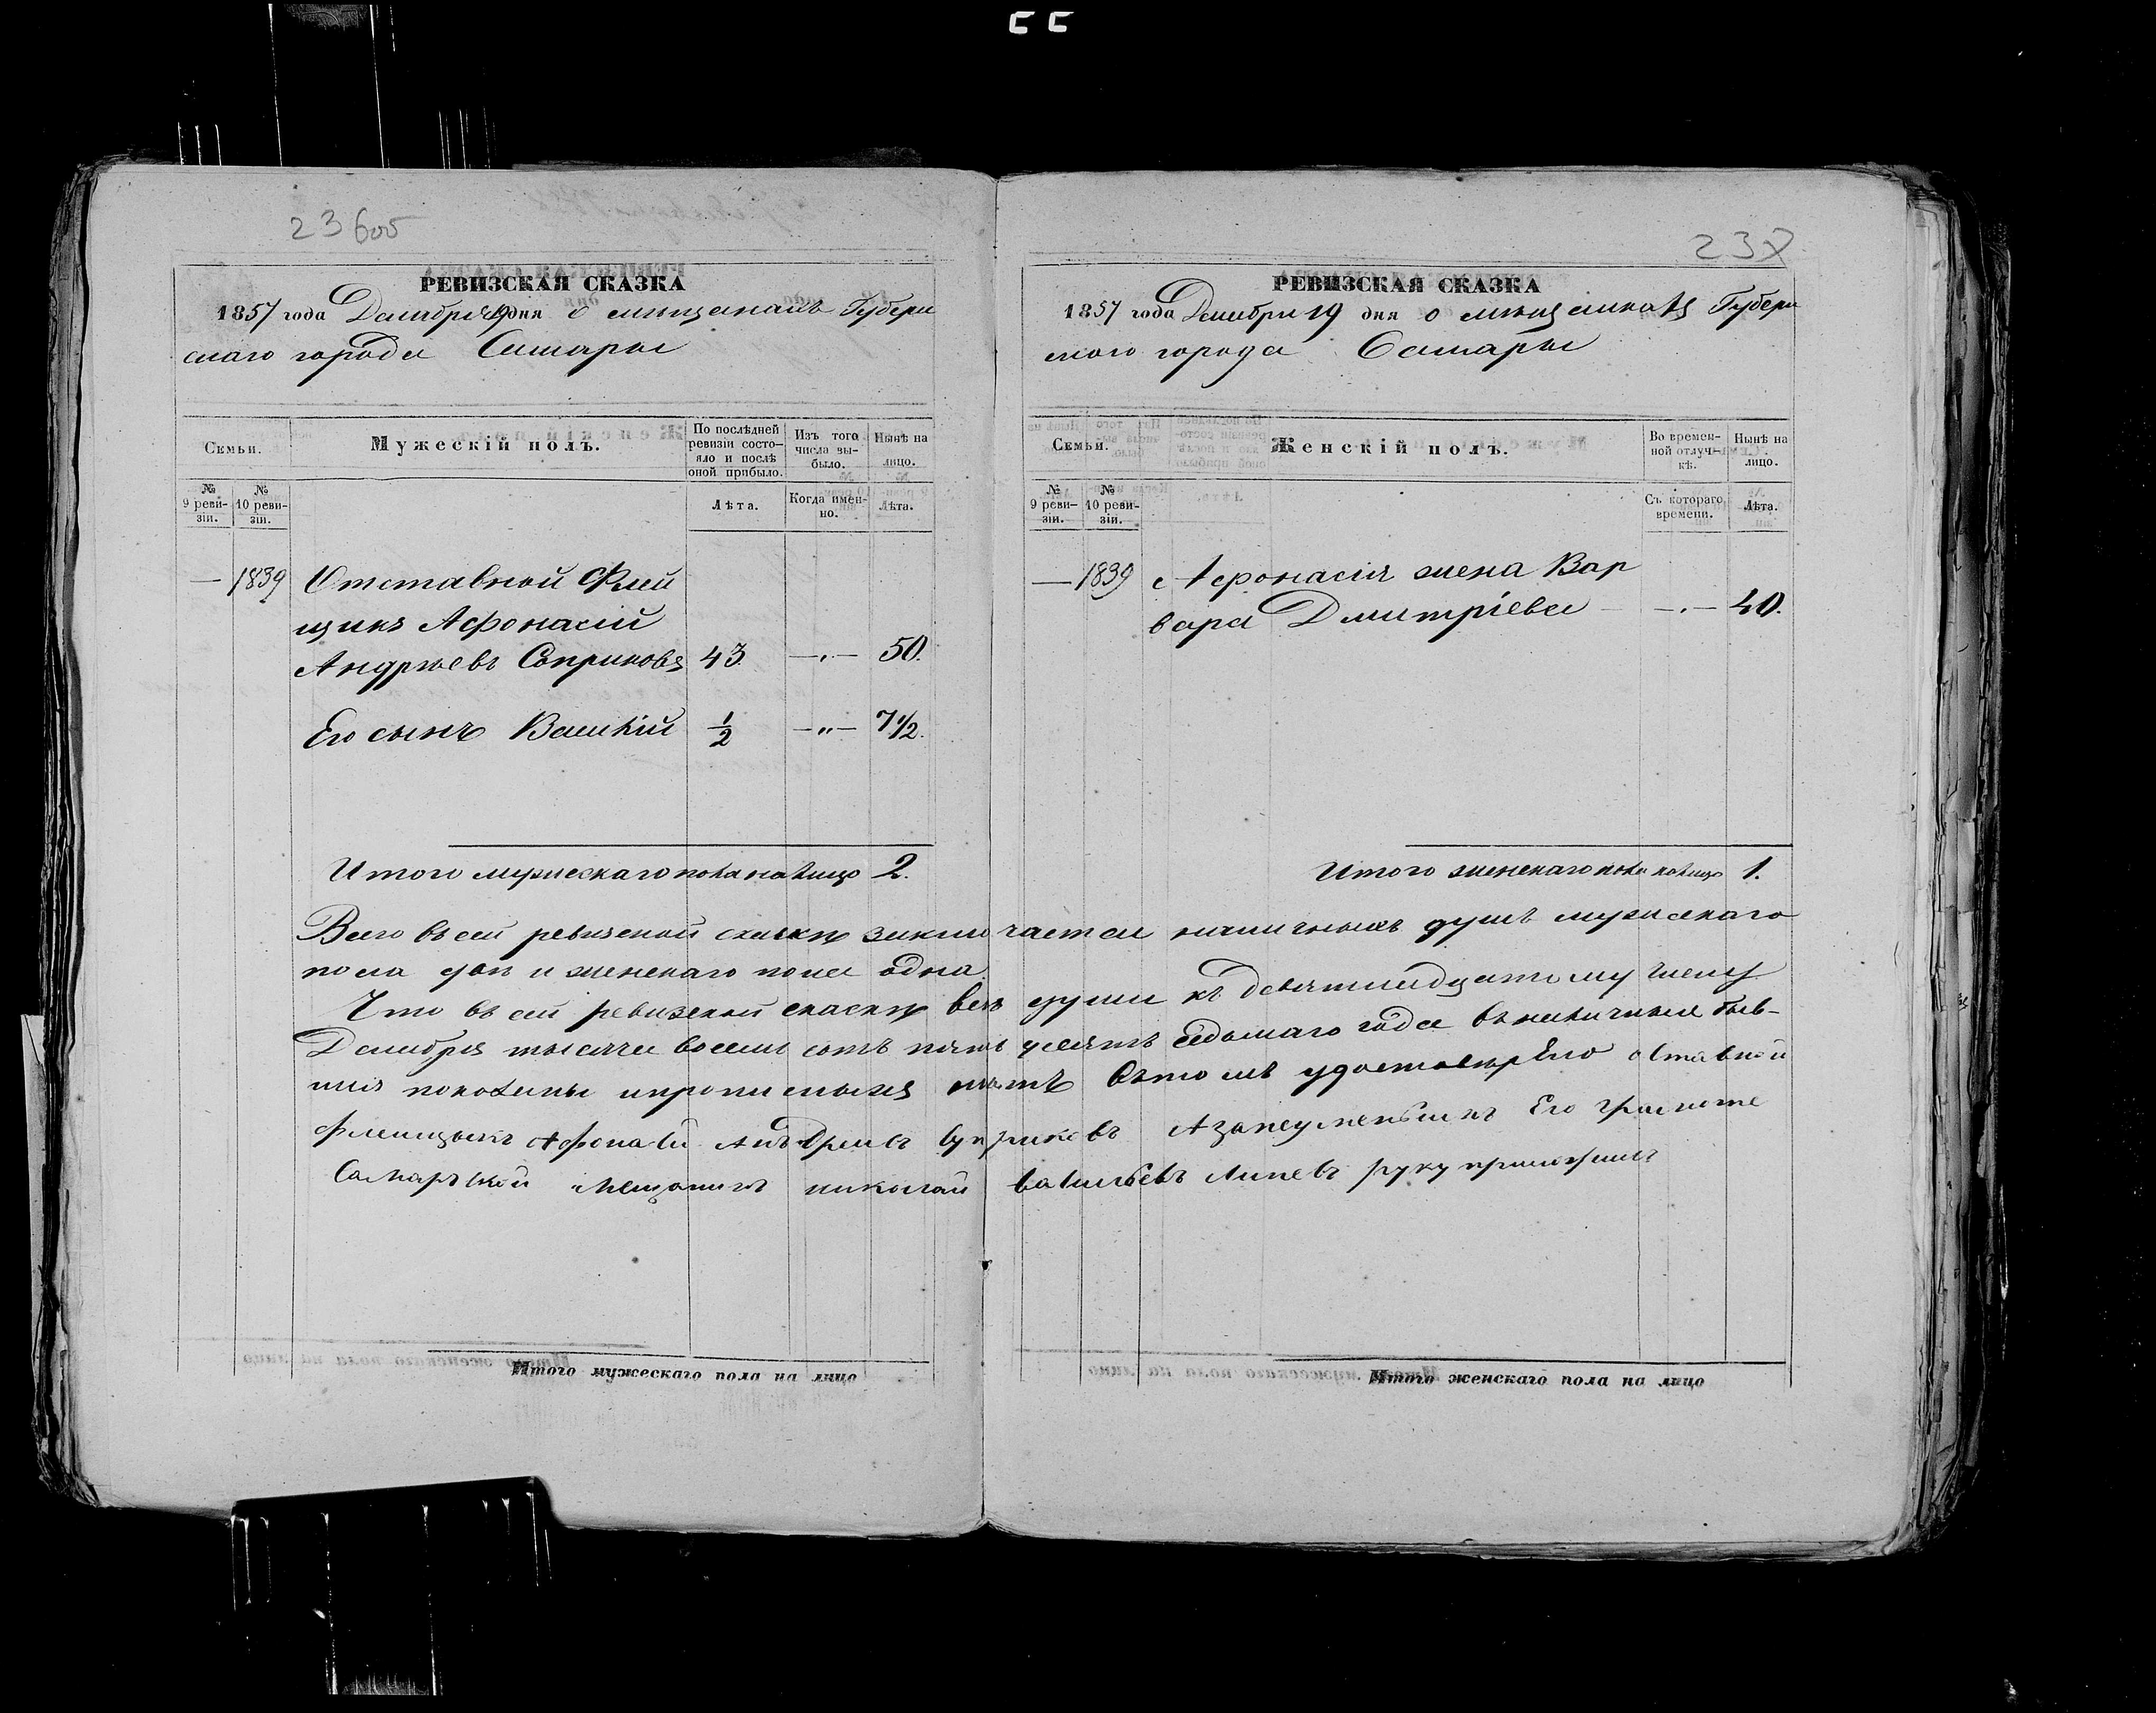 23 боб
РЕВИЗСКАЯ СКАЗКА
1857 года Декабря 19 дня о мещанахъ Губерн
скаго города Самары
Семьи.
Мужескій полъ.
По послѣдней ревизіи состояло и послѣ оной прибыло.
Изъ того числа выбыло.
Нынѣ на лицо.
№ 9 ревизіи.
№ 10 ревизіи.
Лѣта.
Когда именно.
Лѣта.
— 1839 Отставной Флей
щикъ Афонасій
Андрѣевъ Суприковъ 43. —„— 50.
Его сынъ Василій ½ —„— 7½.
Итого мужескаго пола на лицо 2.
23
РЕВИЗСКАЯ СКАЗКА
1857 года Декабря 19 дня о мещанкахъ Губерн
скаго города Самары
Семьи.
Женскій полъ.
Во временной отлучкѣ.
Нынѣ на лицо.
№ 9 ревизіи.
№ 10 ревизіи.
Съ котораго времени.
Лѣта.
— 1839 Афонасія жена Вар
вара Дмитріева — —„— 40.
Итого женскаго пола на лицо 1.
Всего въ сей ревизской сказкѣ заключается наличныхъ душъ мужескаго
пола двѣ и женскаго пола одна.
Что въ сей ревизской сказкѣ всѣ души къ девятнадцатому числу
Декабря тысяча восемь сотъ пятьдесятъ седьмаго года въ наличныя быв-
шия показаны и прописныхъ нѣтъ вътомъ удостоверяю отставной
Афонасий Андреевъ Суприковъ Азанеуменьемъ Его Грамоте
Самарской Мещанинъ николай васильевъ руку приложилъ
Итого мужескаго пола на лицо
Итого женскаго пола на лицо